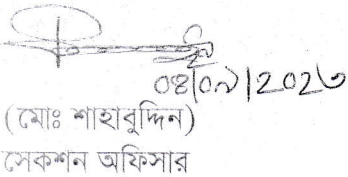 ০৪|০৯|২০২৩
(মোঃ শাহাবুদ্দিন)
সেকশন অফিসার